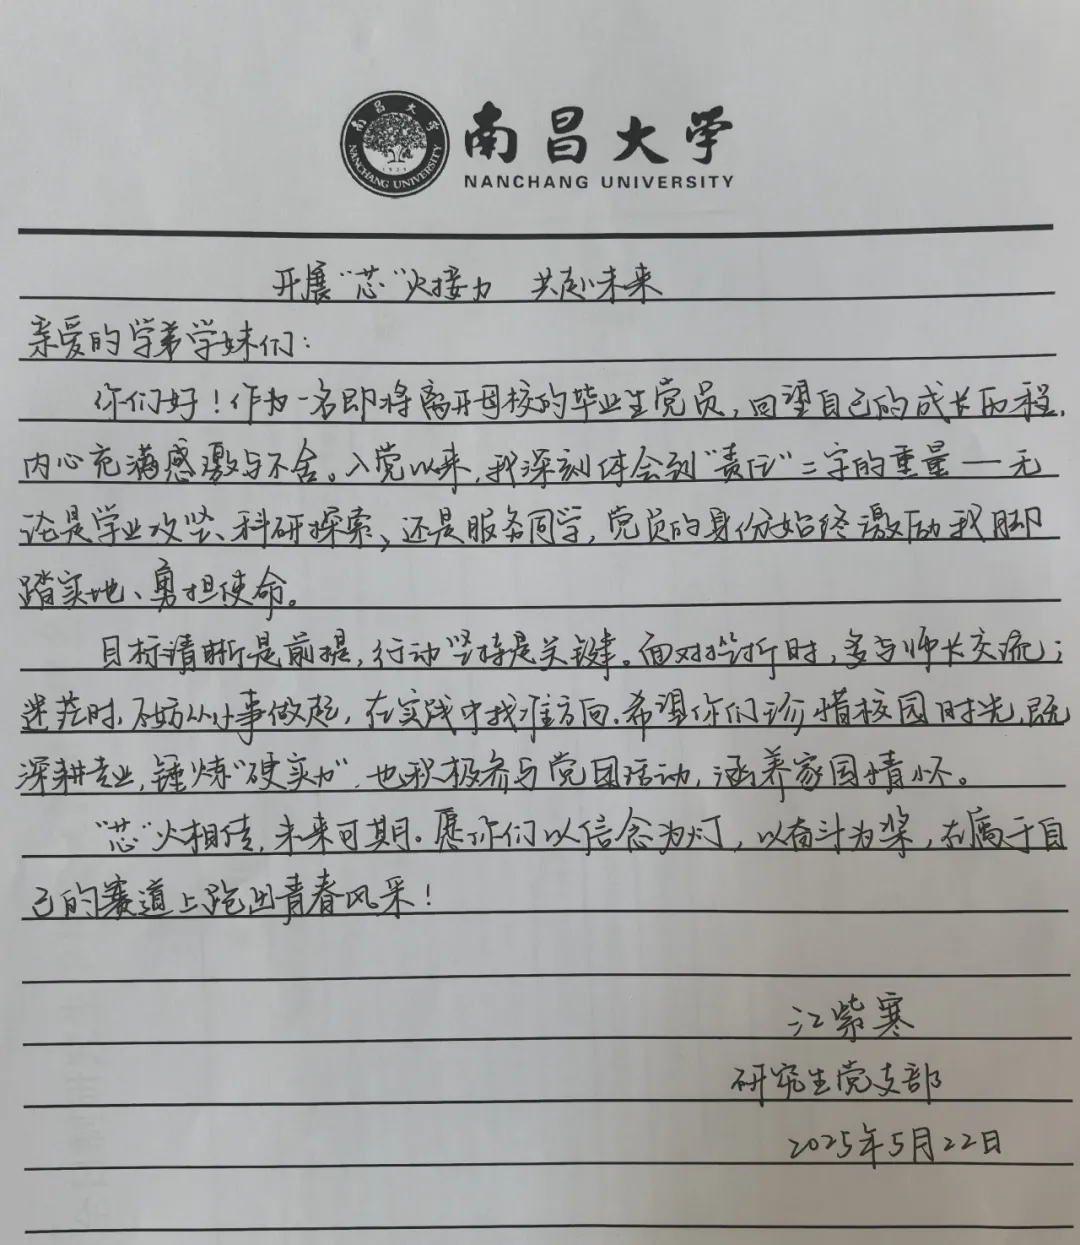 南昌大学
NANCHANG UNIVERSITY
南昌大学
NANCHANG UNIVERSITY
1921
开展“芯”火接力 共赴未来
亲爱的学弟学妹们：
你们好！作为一名即将离开母校的毕业生党员，回望自己的成长历程，
内心充满感激与不舍。入党以来，我深刻体会到“责任”二字的重量——无
论是学业攻坚、科研探索、还是服务同学，党员的身份始终激励我脚
踏实地、勇担使命。
目标清晰是前提，行动坚持是关键。面对挫折时，多与师长交流；
迷茫时，不妨从小事做起，在实践中找准方向。希望你们珍惜校园时光，既
深耕专业，锤炼“硬实力”，也积极参与党团活动，涵养家国情怀。
“芯”火相传，未来可期。愿你们以信念为灯，以奋斗为桨，在属于自
己的赛道上跑出青春风采！
江紫寒
研究生党支部
2025年5月22日